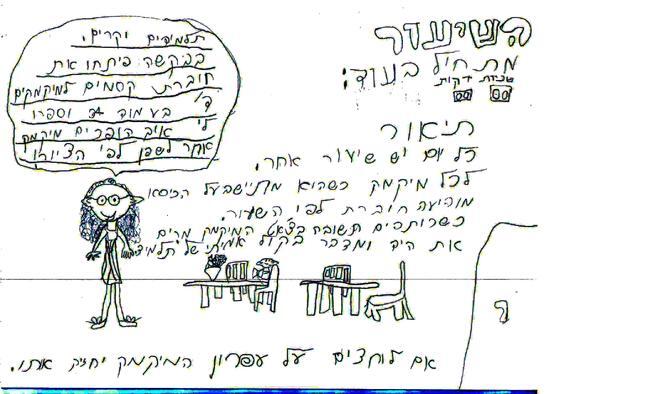 השיעור
מתחיל בעוד:
שניות דקות
00 00
תלמידים יקרים,
בבקשה פיתחו את
חוברת קסמים למיקמקים
בעמוד 34 וספרו
לי איך הופכים מיקמק
אחר לשפן לפי הציור!
תיאור
כל יום יש שיעור אחר.
לכל מיקמק כשהוא מתיישב על הכיסא
מופיעה חוברת לפי השעור.
כשרוצים תשובה בצ'אט המיקמק מרים
את היד ומדבר בקול אמיתי של תלמיד.
אם לוחצים על עפרון המיקמק יחזיק אותו.